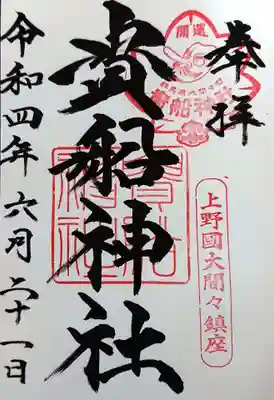 奉拝
開運
貴船神社
上野國大間々鎮座
貴船神社
貴船神社
令和四年六月二十一日